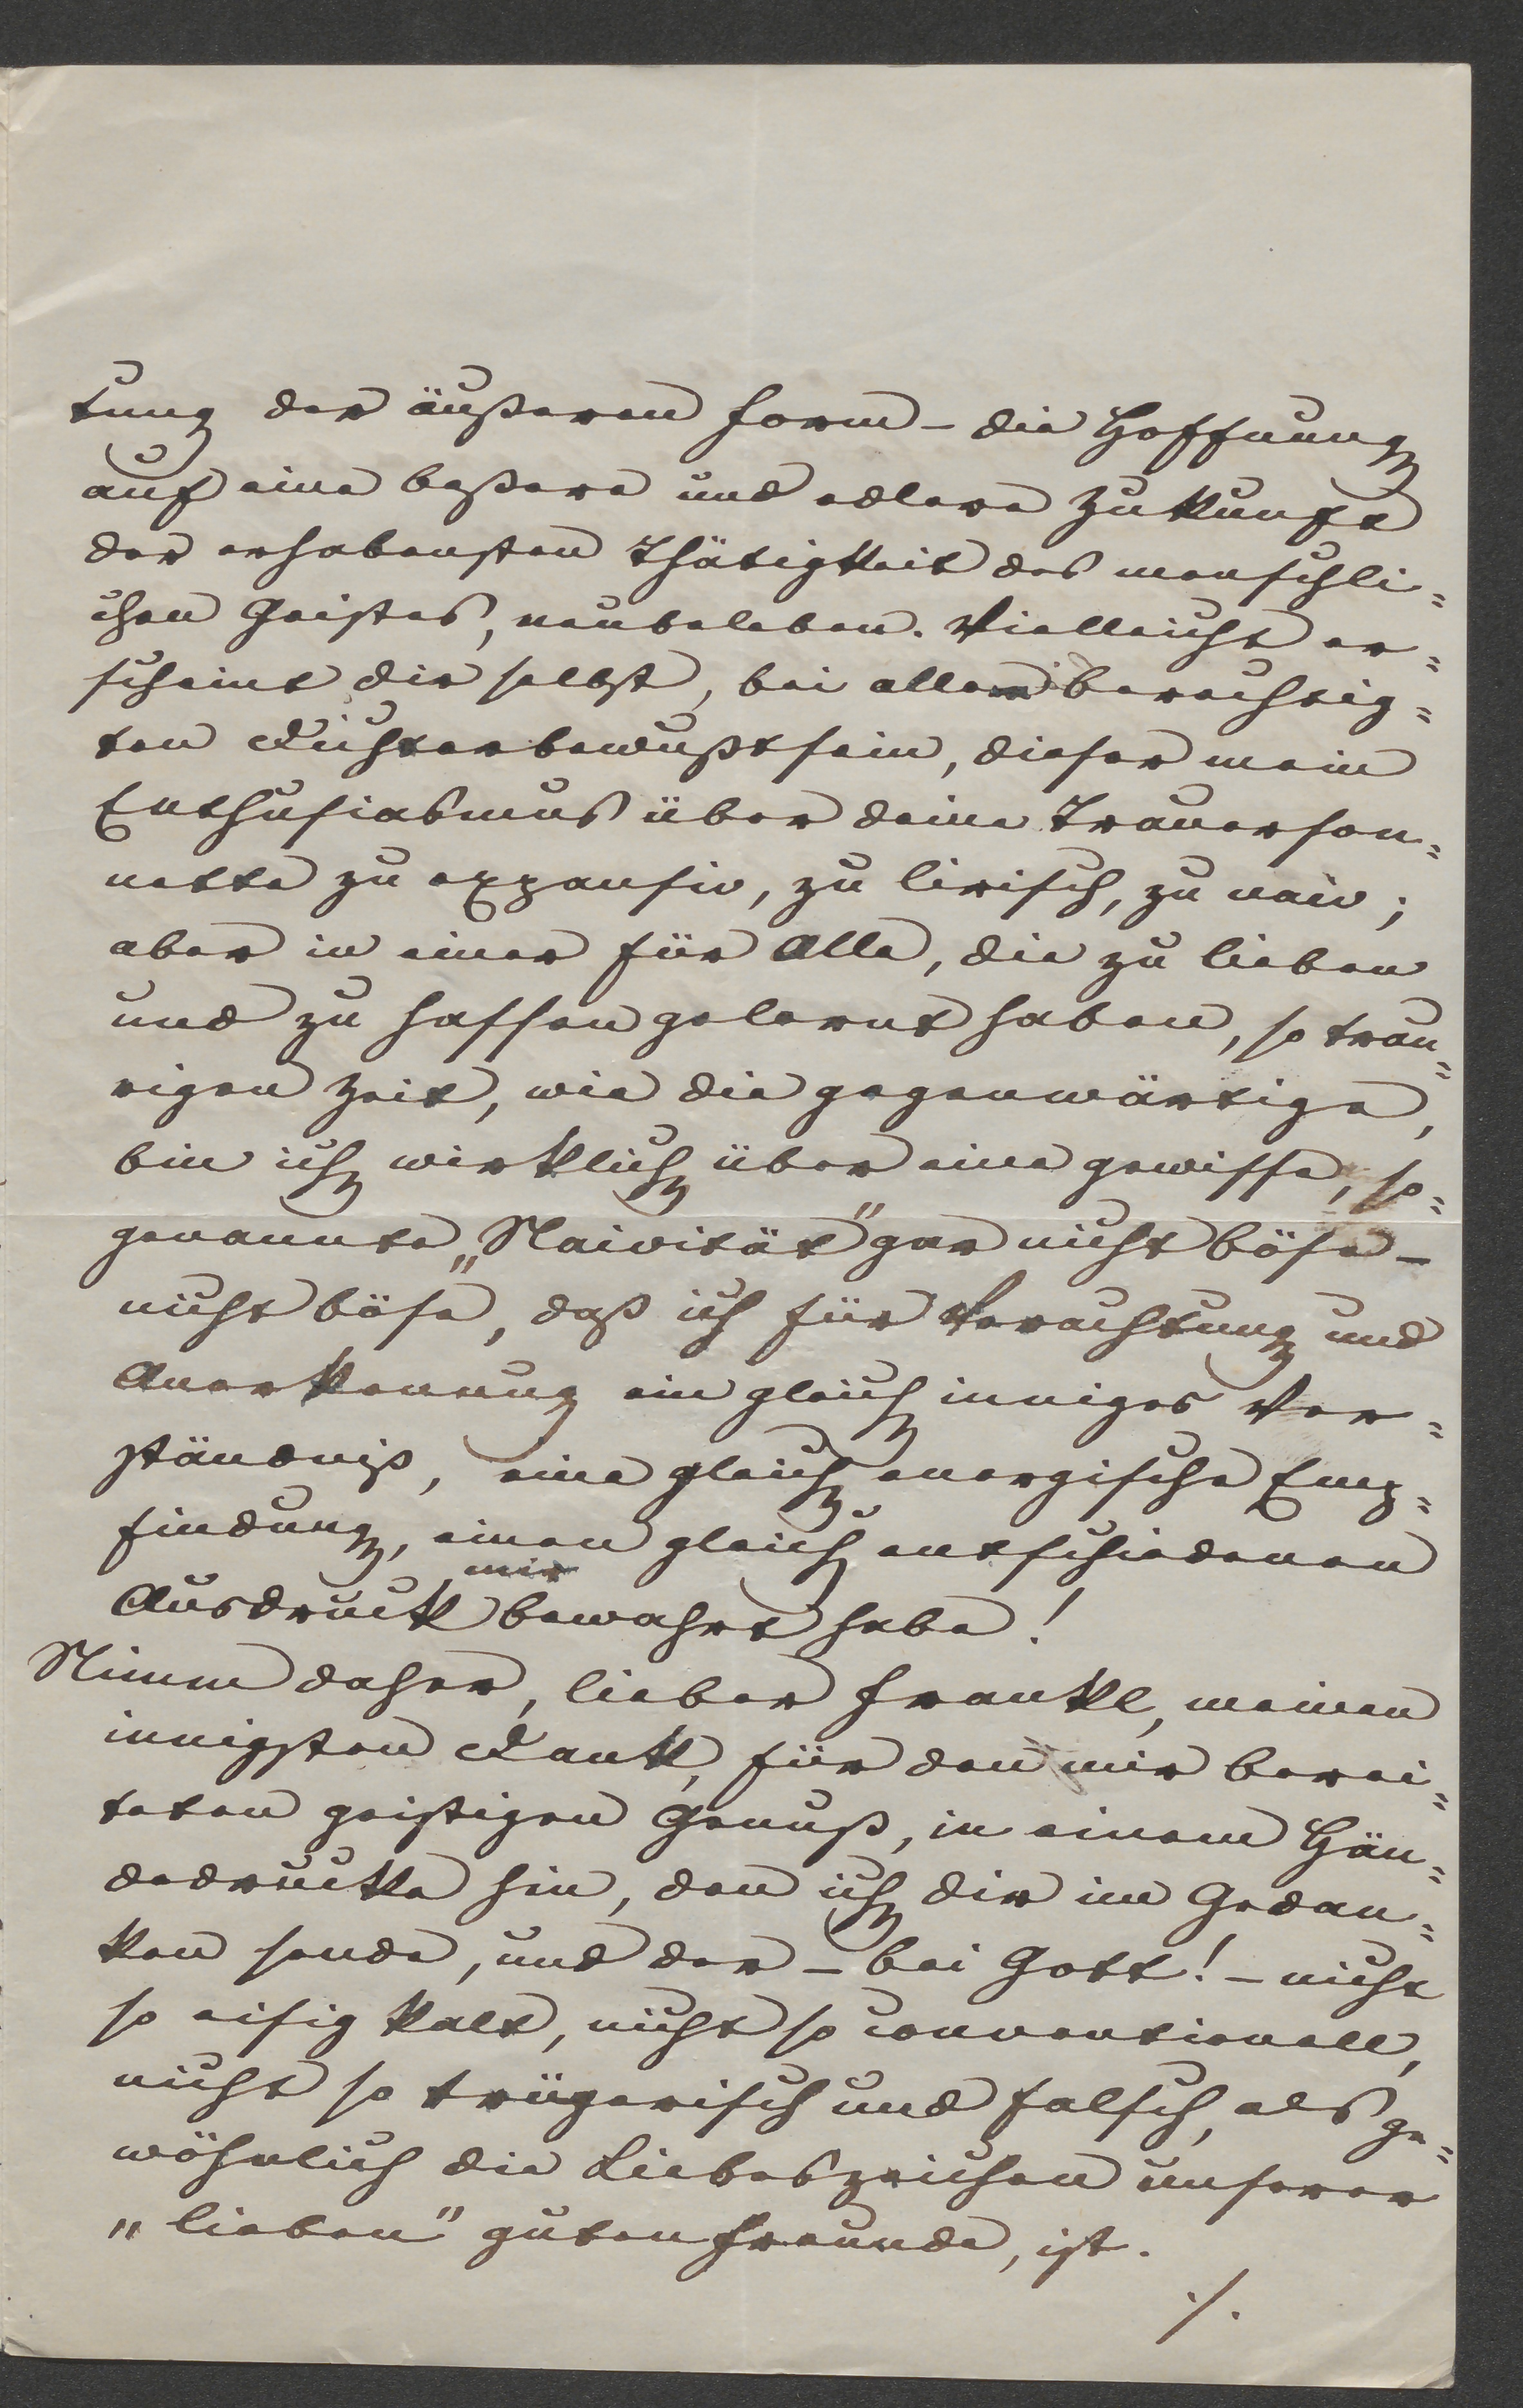 tung der äußeren Form – die Hoffnung
auf eine beßere und edlere Zukunft
der erhabensten Thätigkeit des menschli=
chen Geistes, neubeleben. Vielleicht er=
scheint dir selbst, bei allem berechtig=
ten Dichterbewußtsein, dieser mein
Enthusiasmus über deine Trauerson=
nette zu expansiv, zu lirisch, zu naiv;
aber in einer für Alle, die zu lieben
und zu hassen gelernt haben, so trau=
rigen Zeit, wie die gegenwärtige,
bin ich wirklich über eine gewisse, so=
genannte „Naivität" gar nicht böse –
nicht böse, daß ich für Verachtung und
Anerkennung ein gleich inniges Ver=
ständniß, eine gleich energische Emp=
findung, einen gleich entschiedenen
mir
Ausdruck bewahrt habe!
Nimm daher, lieber Frankl, meinen
innigsten Dank, für den mir berei=
teten geistigen Genuß, in einem Hän=
dedrucke hin, den ich dir im Gedan=
ken sende, und der – bei Gott! – nicht
so eisig kalt, nicht so conventionell,
nicht so trügerisch und falsch, als ge=
wöhnlich die Liebeszeichen unserer
„lieben" guten Freunde, ist.
./.